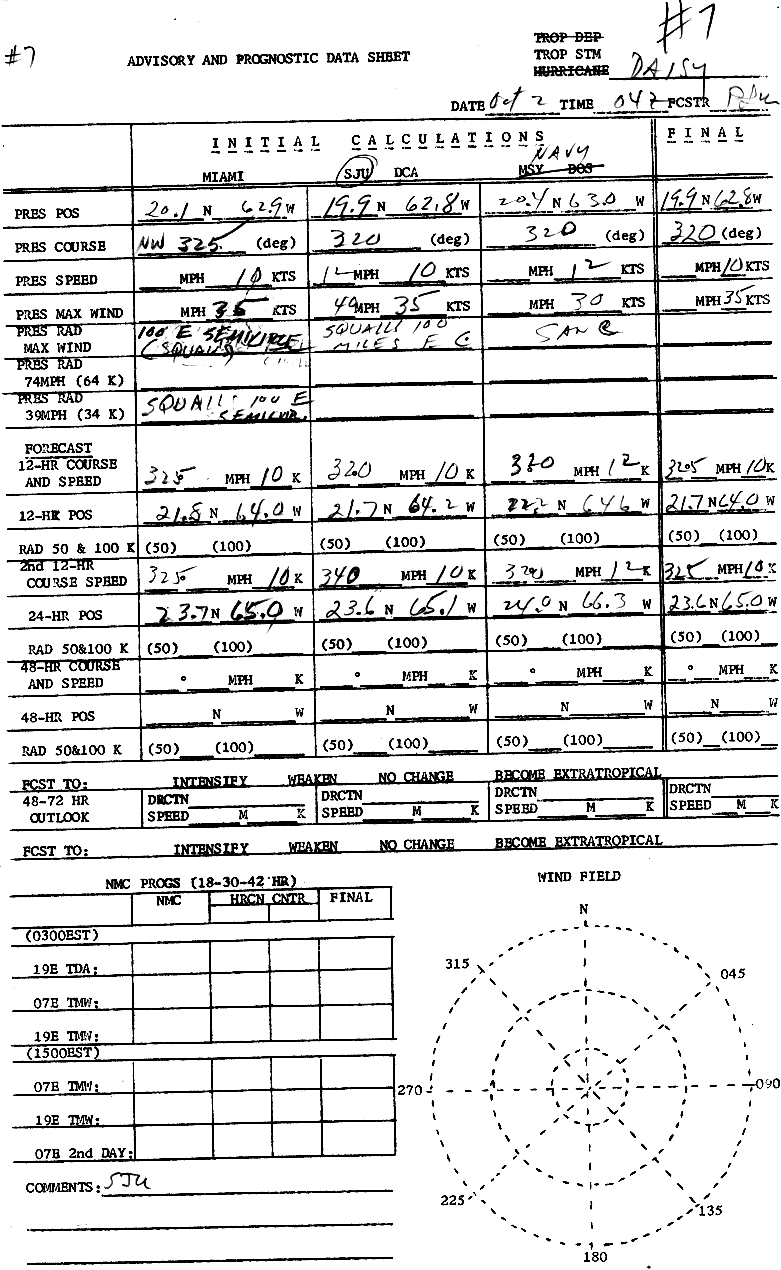 #7
#7
TROP DEP
ADVISORY AND PROGNOSTIC DATA SHEET TROP STM
HURRICANE DAISY
DATE Oct 2 TIME 04Z FCSTR
INITIAL CALCULATIONS FINAL
NAVY
MIAMI SJU DCA MSY BOS
PRES POS 20.1 N 62.9 W 19.9 N 62.8 W 20.4 N 63.0 W 19.9 N 62.8 W
PRES COURSE NW 325 (deg) 320 (deg) 320 (deg) 320 (deg)
PRES SPEED MPH 10 KTS 12 MPH 10 KTS MPH 12 KTS MPH 10 KTS
PRES MAX WIND MPH 35 KTS 40 MPH 35 KTS MPH 30 KTS MPH 35 KTS
PRES RAD 100 E SEMICIRCLE SQUALLS 100
MAX WIND (SQUALLS MILES E
PRES RAD
74MPH (64 K)
PRES RAD SQUALLS 100 E
39MPH (34 K) SEMICIR.
FORECAST
12-HR COURSE
AND SPEED 325 MPH 10 K 320 MPH 10 K 320 MPH 12 K 325 MPH 10 K
12-HR POS 21.8 N 64.0 W 21.7 N 64.2 W 22.2 N 64.6 W 21.7 N 64.0 W
RAD 50 & 100 K (50) (100) (50) (100) (50) (100) (50) (100)
2nd 12-HR
COURSE SPEED 325 MPH 10 K 340 MPH 10 K 320 MPH 12 K 325 MPH 10 K
24-HR POS 23.7 N 65.0 W 23.6 N 65.1 W 24.0 N 66.3 W 23.6 N 65.0 W
RAD 50&100 K (50) (100) (50) (100) (50) (100) (50) (100)
48-HR COURSE
AND SPEED ° MPH K ° MPH K ° MPH K ° MPH K
48-HR POS N W N W N W N W
RAD 50&100 K (50) (100) (50) (100) (50) (100) (50) (100)
FCST TO: INTENSIFY WEAKEN NO CHANGE BECOME EXTRATROPICAL
48-72 HR DRCTN DRCTN DRCTN DRCTN
OUTLOOK SPEED M K SPEED M K SPEED M K SPEED M K
FCST TO: INTENSIFY WEAKEN NO CHANGE BECOME EXTRATROPICAL
NMC PROGS (18-30-42 HR) WIND FIELD
NMC HRCN CNTR FINAL
N
(0300EST)
315 045
19E TDA:
07E TMW:
19E TMW:
(1500EST)
07E TMW:
270 090
19E TMW:
07E 2nd DAY:
COMMENTS: SJU
225 135
180